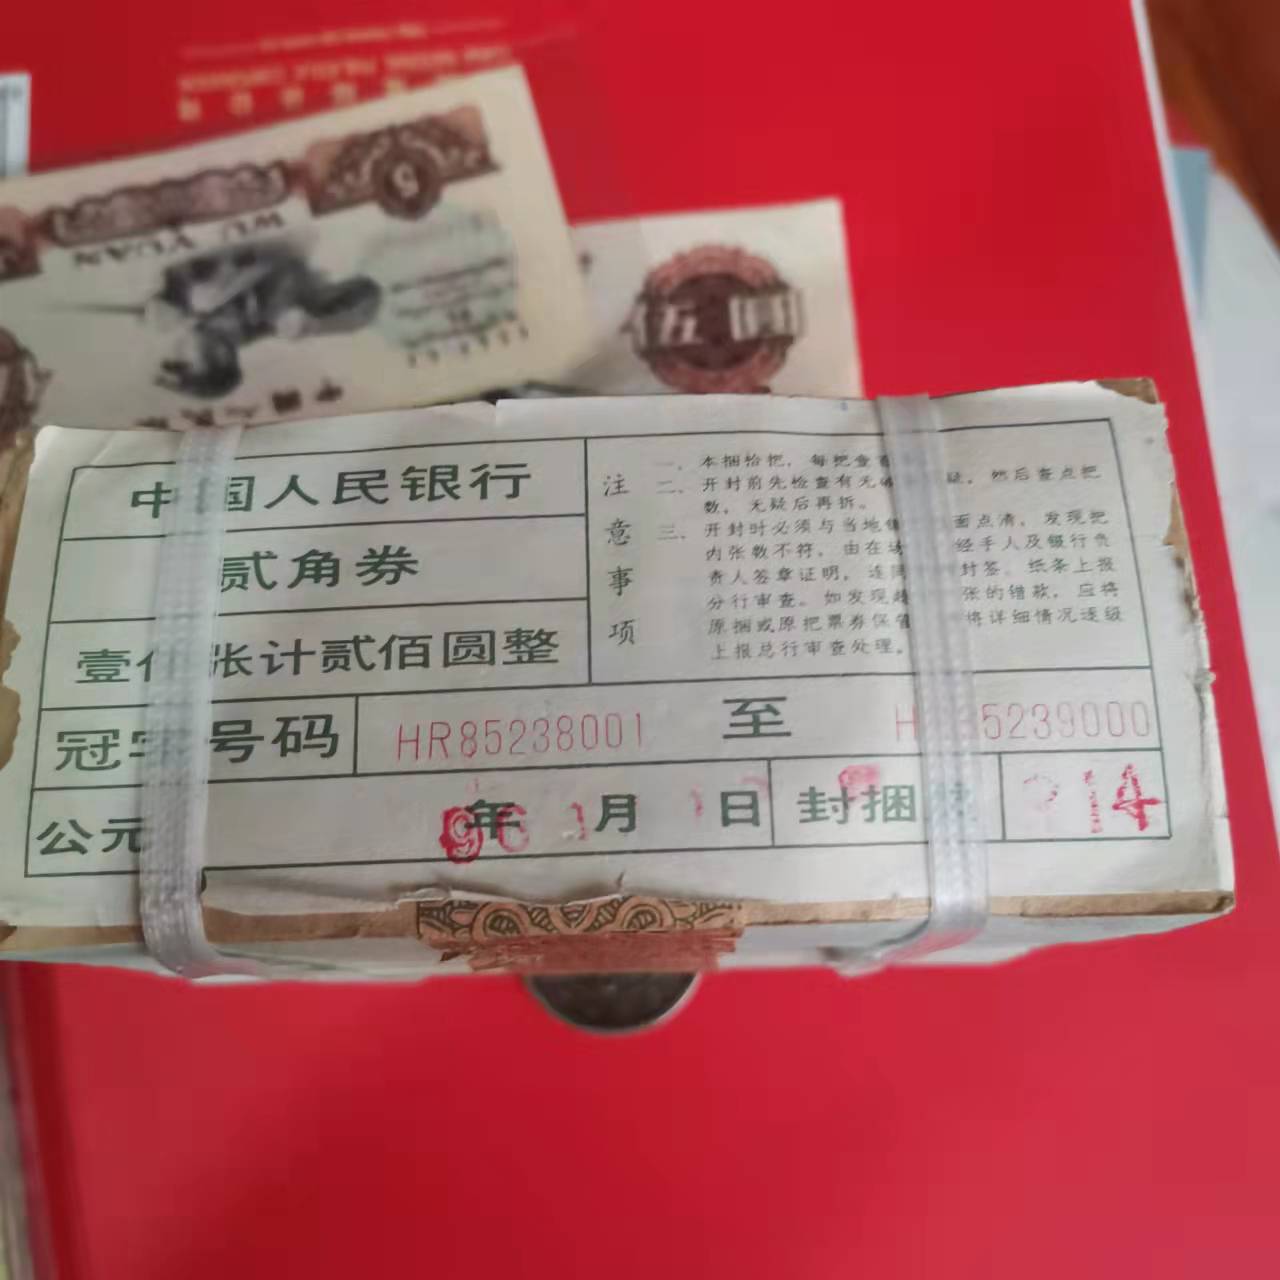 WU YUAN
5
伍圆
中国人民银行
贰角券
壹 张计贰佰圆整
注意事项
一、本捆拾把,每把壹
二、开封前先检查有无 疑,然后查点把
数,无疑后再拆。
三、开封时必须与当地 面点清,发现把
内张数不符,由在场 经手人及银行负
责人签章证明,连同 封签、纸条上报
分行审查。如发现 张的错款,应将
原捆或原把票券保管 将详细情况逐级
上报总行审查处理。
冠字号码 HR85238001 至 H 5239000
公元 96年 1月 日 封捆 14